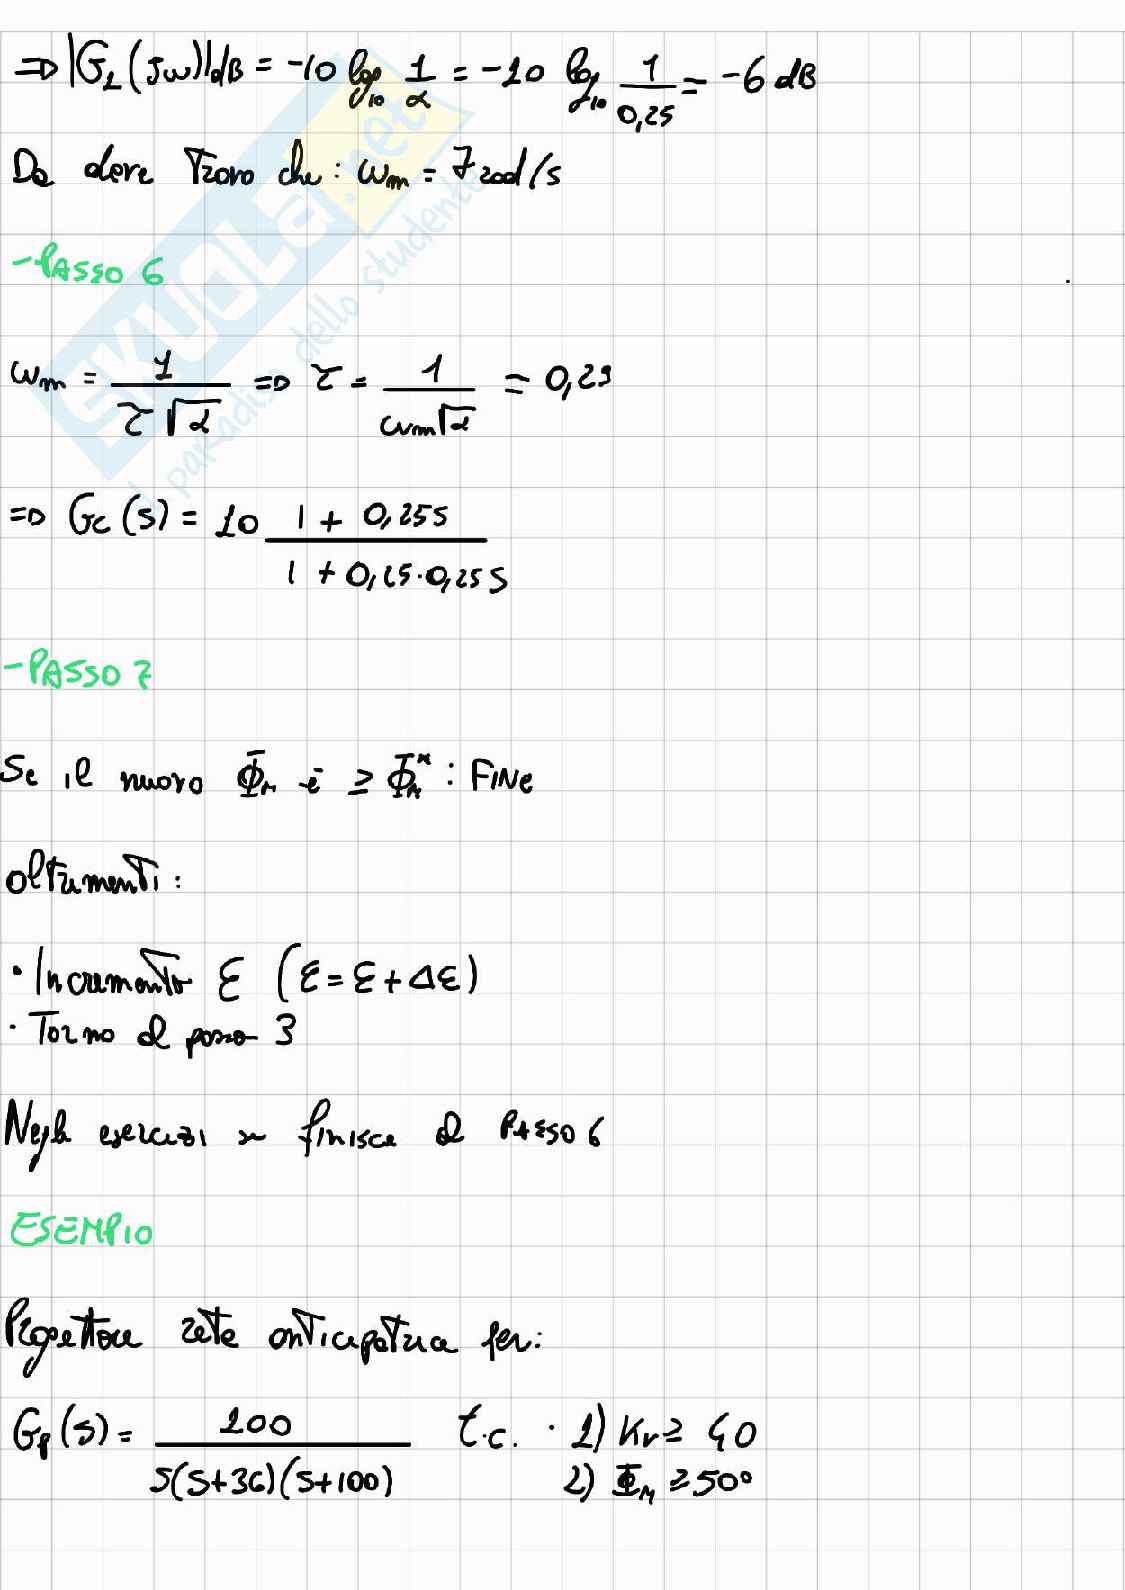 ⇒ |G₁(jω)|dB = -10 log₁₀ 1/α = -10 log₁₀ 1/0,25 = -6 dB
Da dove trovo che: ωm = 7 rad/s
- PASSO 6
ωm = 1/(τ√α) ⇒ τ = 1/(ωm√α) = 0,29
⇒ Gc(s) = 10 (1 + 0,25s)/(1 + 0,25·0,25s)
- PASSO 7
Se il nuovo Φ̄M è ≥ Φ̄M* : FINE
altrimenti:
· Incremento ε (ε = ε + Δε)
· Torno al passo 3
Negli esercizi si finisce al PASSO 6
ESEMPIO
Progettare rete anticipatrice per:
Gp(s) = 100/(s(s+36)(s+100)) t.c. · 1) Kv ≥ 40
2) ΦM ≥ 50°
SKUOLA.net
il paradiso dello studente